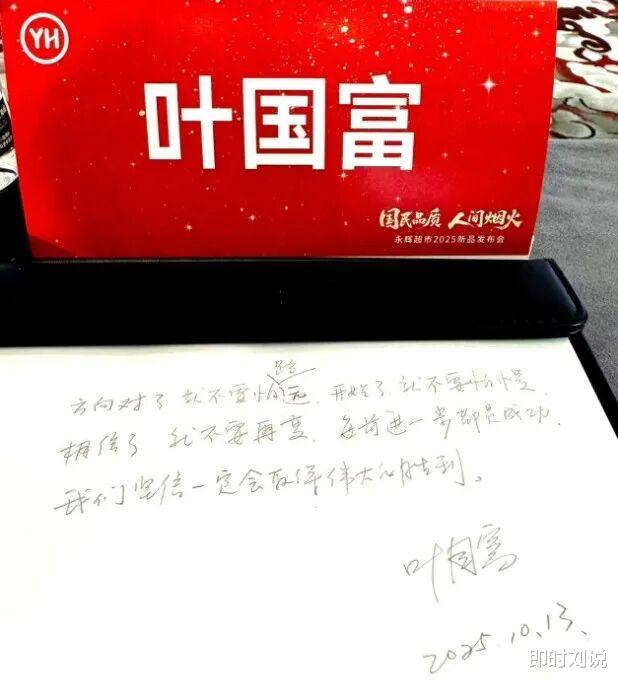 YH
叶国富
国民品质 人间烟火
永辉超市2025新品发布会
路
方向对了 就不要怕远、开始了、就不要怕慢
相信了 就不要再变、每前进一步都是成功、
我们坚信一定会取得伟大的胜利。
叶国富
2025.10.13、
即时刘说